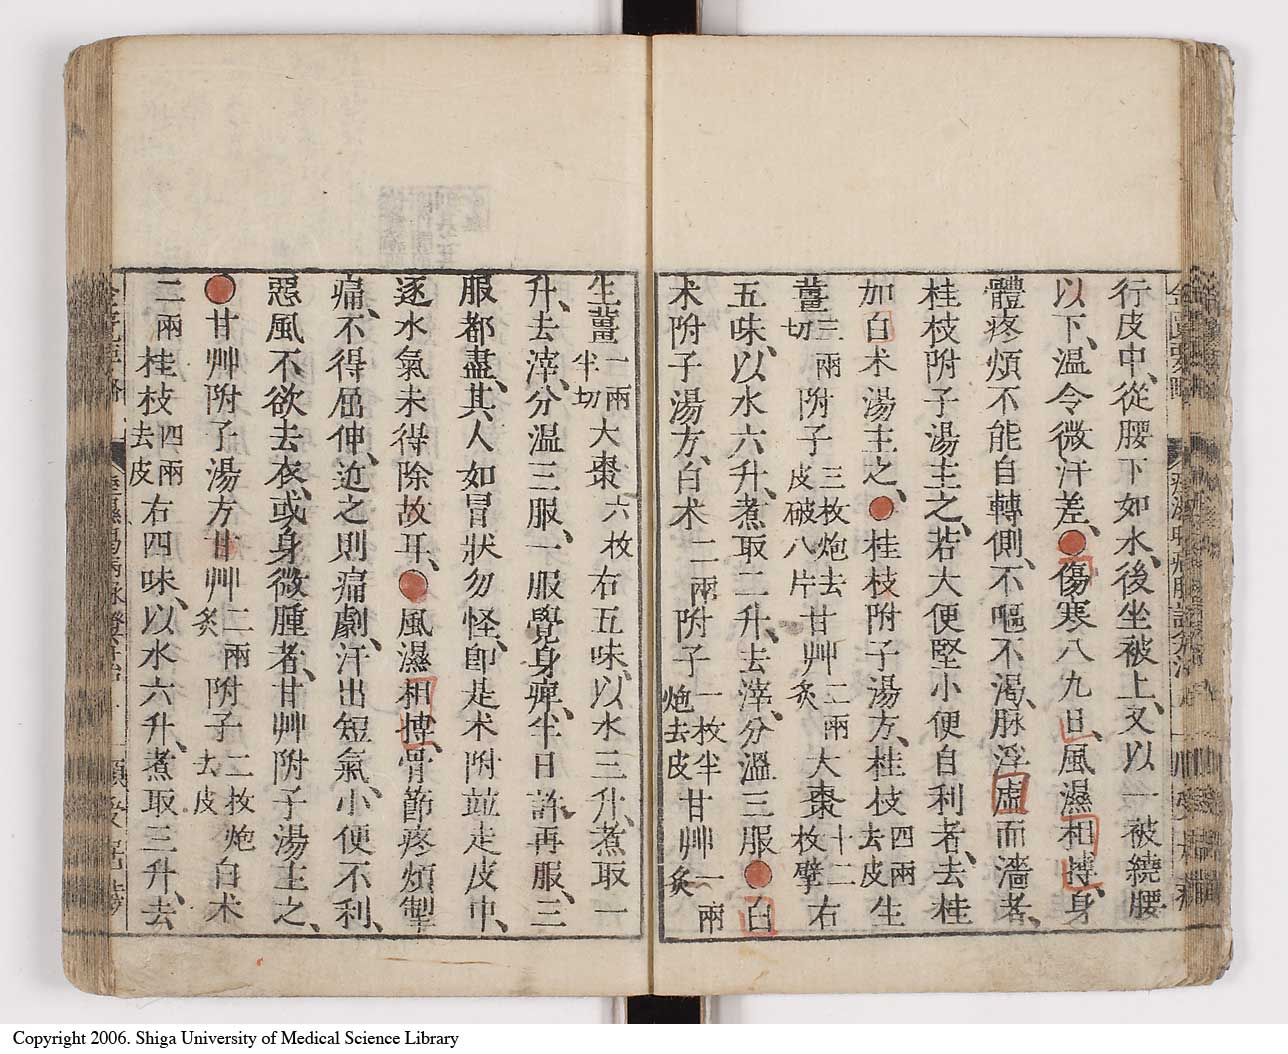 行皮中、從腰下如水、後坐被上、又以一被繞腰
以下、溫令微汗差、●傷寒八九日、風濕相摶、身
體疼煩不能自轉側、不嘔不渴、脉浮虛而濇者、
桂枝附子湯主之、若大便堅小便自利者、去桂
加白朮湯主之、●桂枝附子湯方、桂枝四兩去皮生
薑三兩切附子三枚炮去皮破八片甘艸二兩炙大棗十二枚擘右
五味、以水六升、煮取二升、去滓、分溫三服●白
朮附子湯方、白朮二兩附子一枚半炮去皮甘艸一兩炙
生薑一兩半切大棗六枚右五味、以水三升、煮取一
升、去滓、分温三服、一服覺身痺、半日許、再服、三
服都盡、其人如冒狀勿怪、卽是朮附並走皮中、
逐水氣未得除故耳、●風濕相摶、骨節疼煩掣
痛、不得屈伸、近之則痛劇、汗出短氣、小便不利、
惡風不欲去衣、或身微腫者、甘艸附子湯主之、
●甘艸附子湯方甘艸二兩炙附子二枚炮去皮白朮
二兩桂枝四兩去皮右四味、以水六升、煮取三升、去
Copyright 2006. Shiga University of Medical Science Library